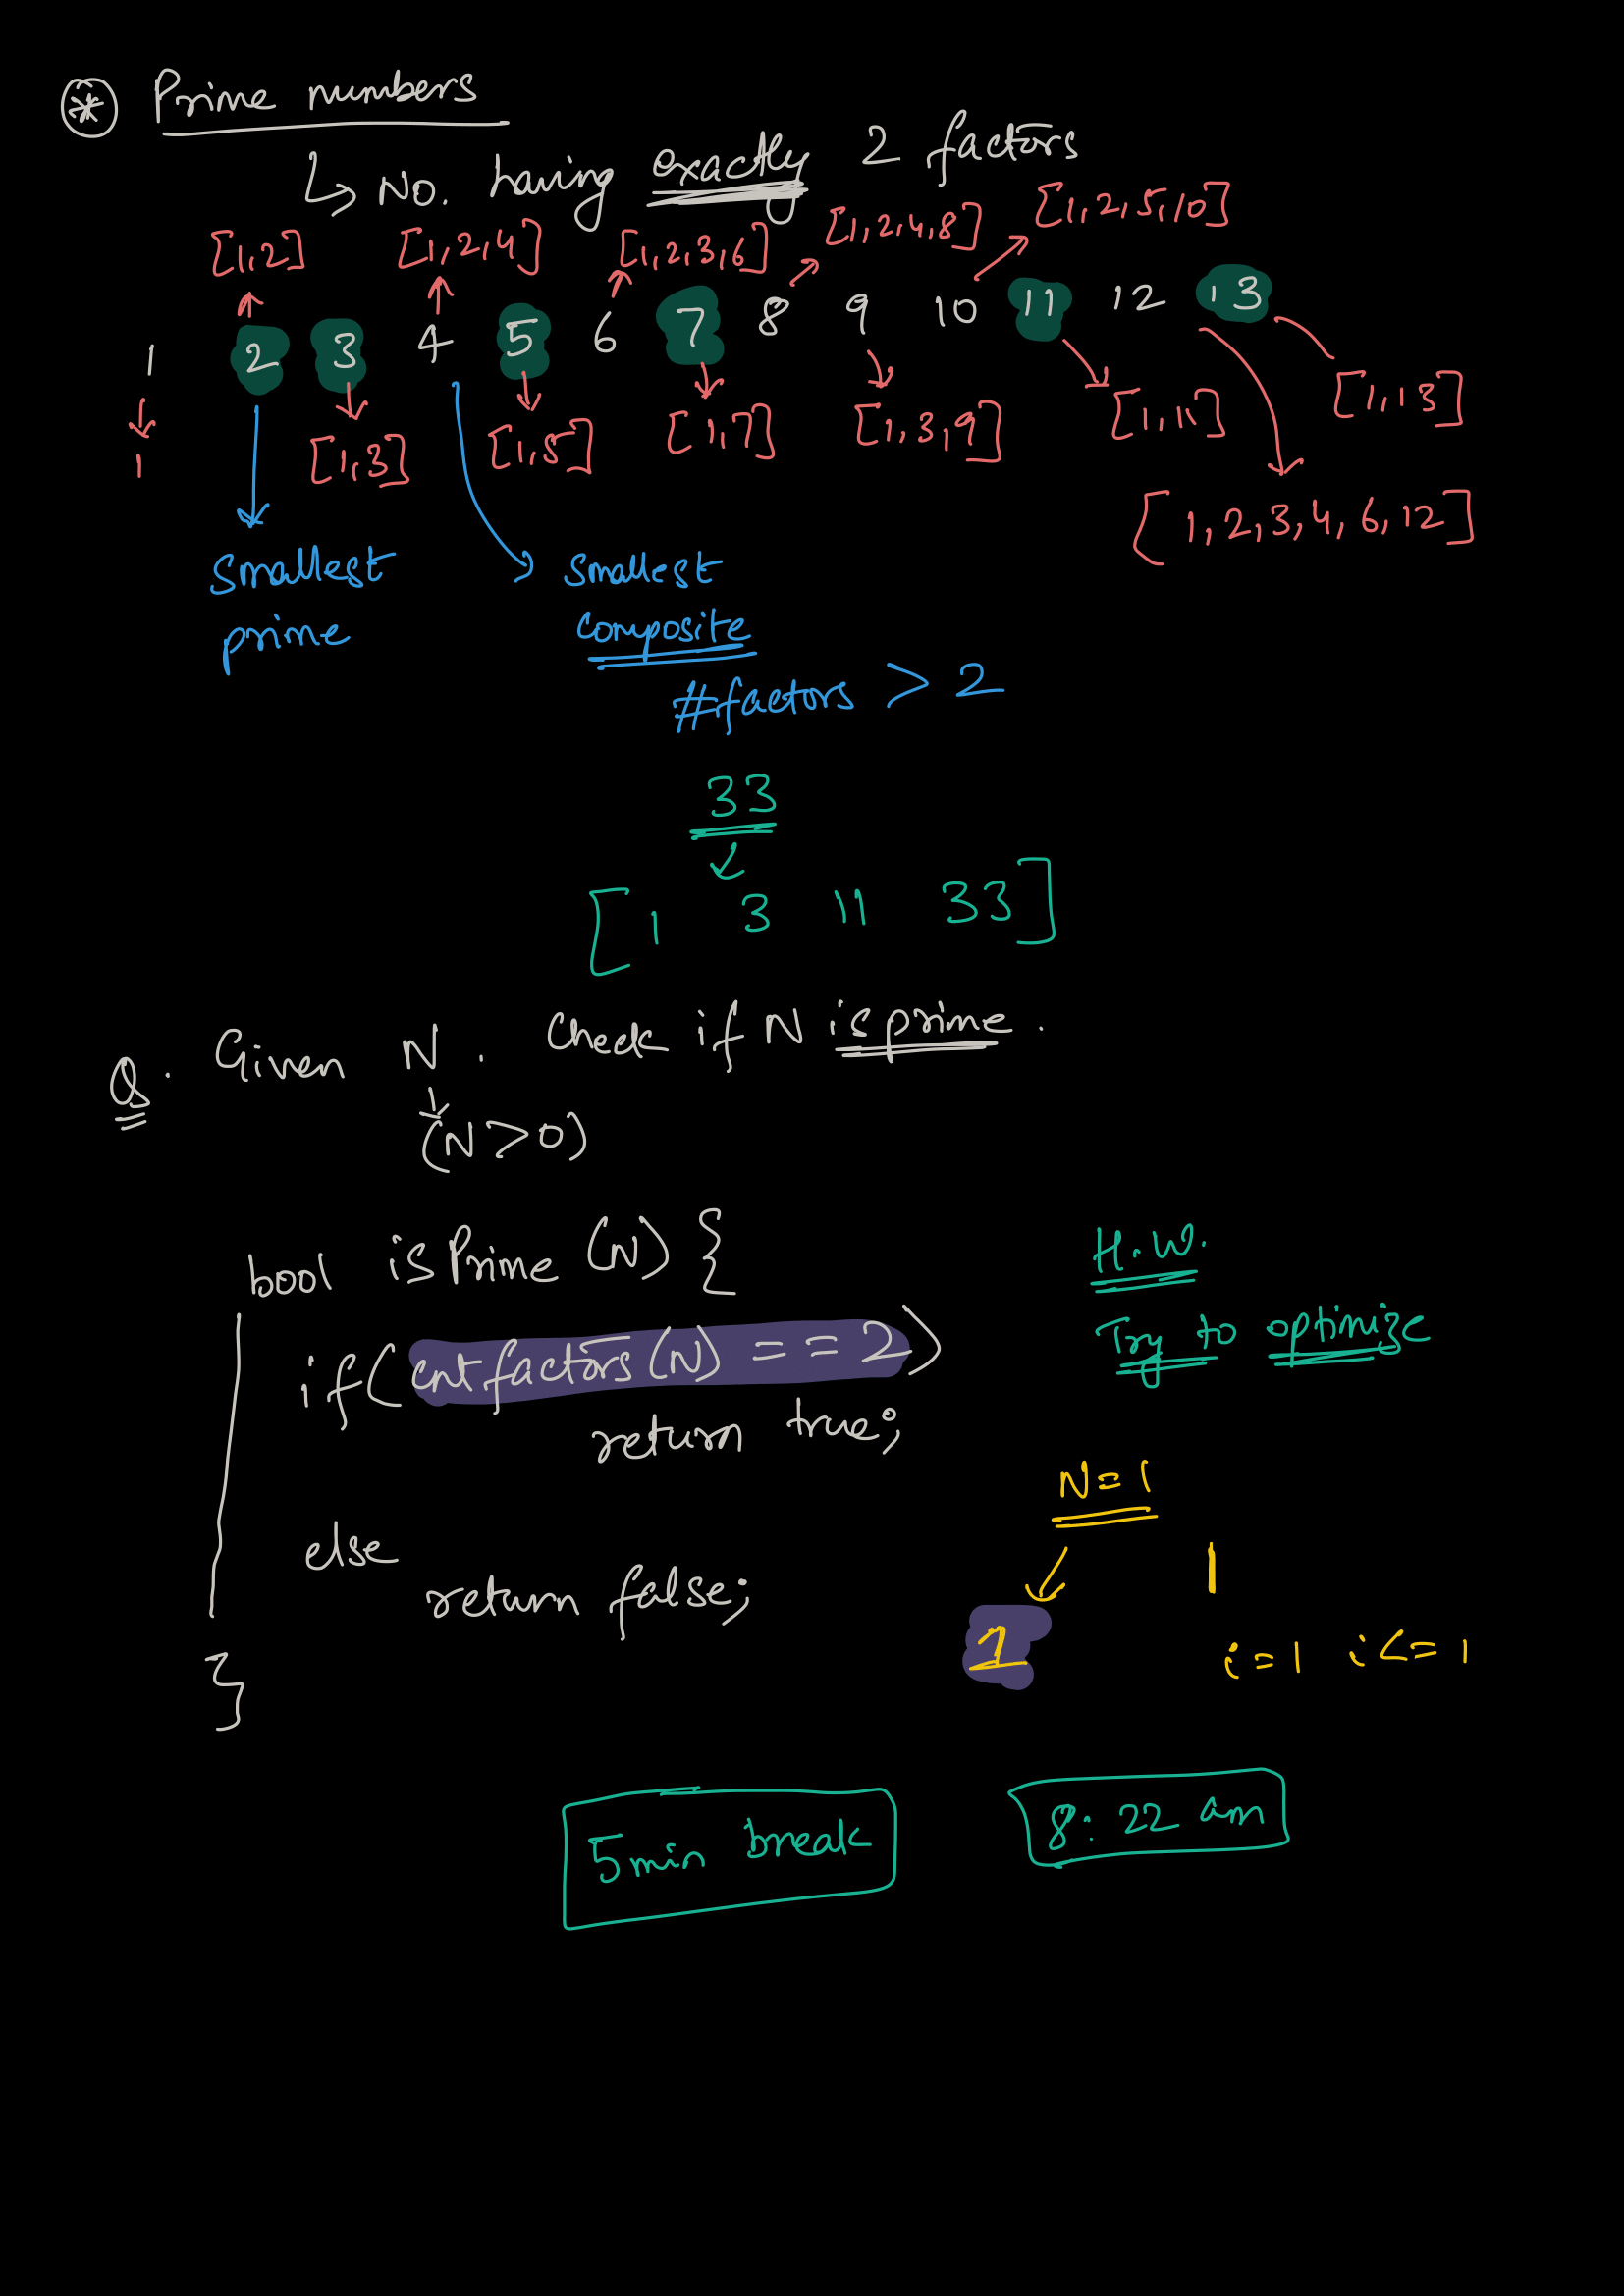 * Prime numbers
↳ No. having exactly 2 factors
[1,2] [1,2,4] [1,2,3,6] [1,2,4,8] [1,2,5,10]
1 2 3 4 5 6 7 8 9 10 11 12 13
1 [1,3] [1,5] [1,7] [1,3,9] [1,11] [1,13]
[1,2,3,4,6,12]
Smallest prime
Smallest composite
#factors > 2
33
[1 3 11 33]
Q. Given N. Check if N is prime.
(N>0)
bool isPrime (N) {
if( cntfactors(N) == 2)
return true;
else
return false;
}
H.W.
Try to optimize
N=1
1
1
i=1 i<=1
5min break
8:22 am